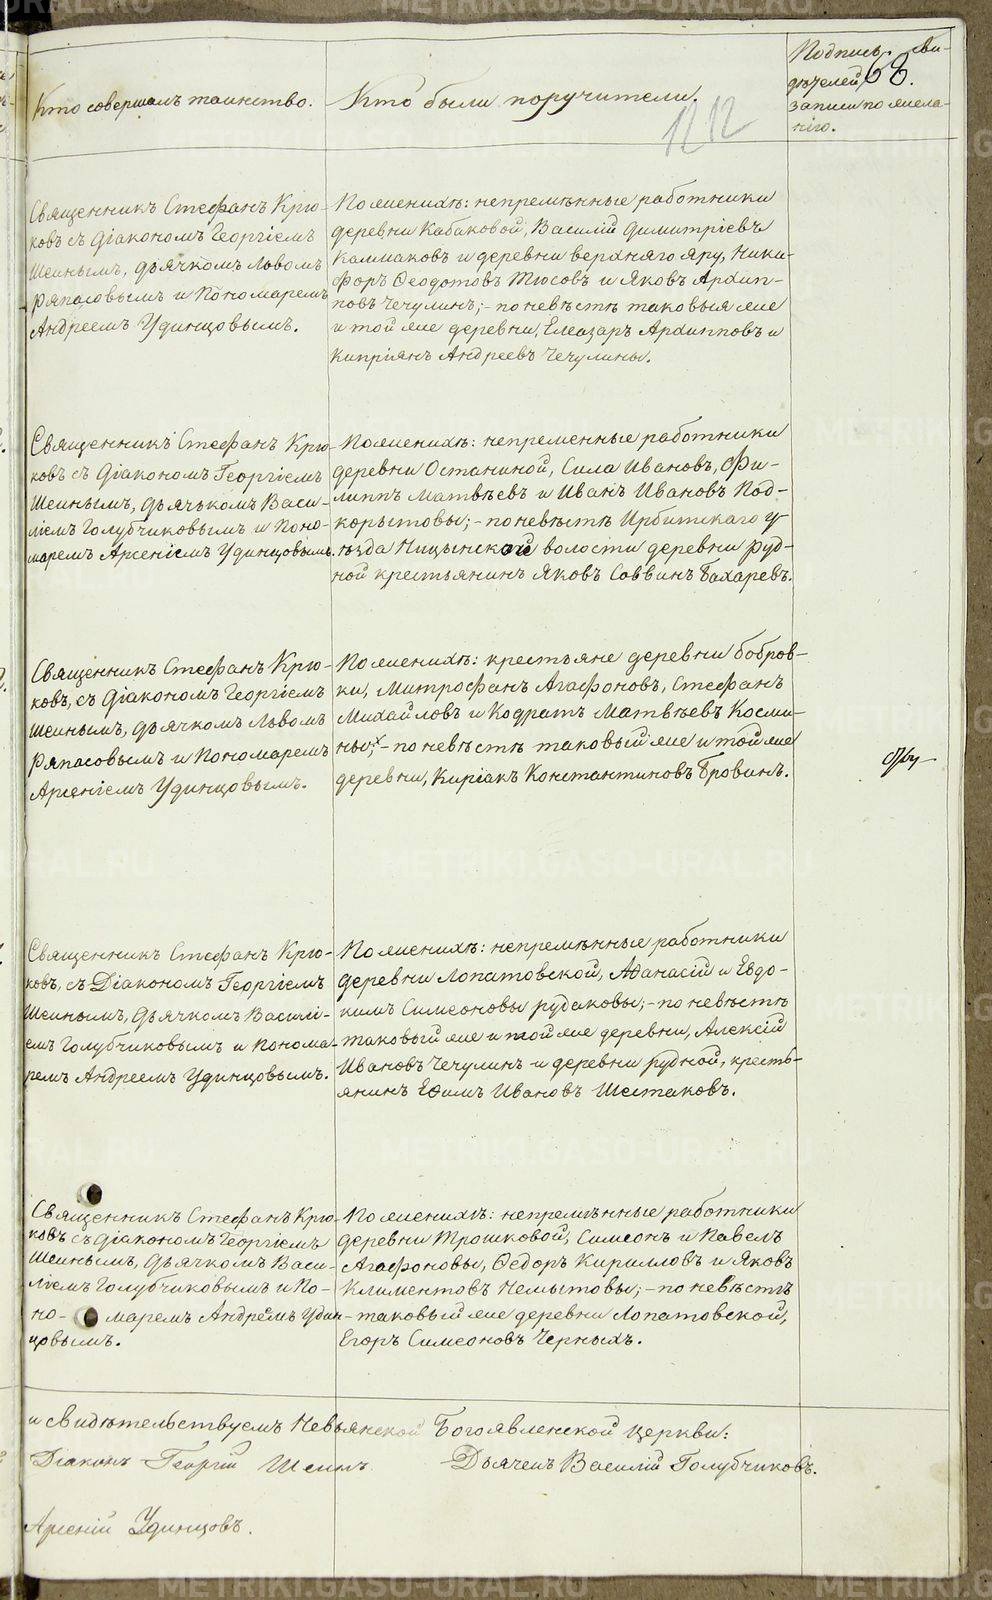 Кто совершалъ таинство.
Кто были поручители.
Подпись сви-
дѣтелей
записи по жела-
нію.
68.
1212
Священникъ Стефанъ Крю-
ковъ съ Діакономъ Георгіемъ
Шеинымъ, дьячкомъ Львомъ
Ряпасовымъ и Пономаремъ
Андреемъ Удинцовымъ.
По женихѣ: непремѣнные работники
деревни Кабаковой, Василій Димитріевъ
Калмаковъ и деревни верхняго яру, Ники-
форъ Ѳеодотовъ Тюсовъ и Яковъ Архип-
повъ Чечулинъ; - по невѣстѣ таковыя же
и той же деревни, Елеазаръ Архипповъ и
Кипріянъ Андреевъ Чечулины.
Священникъ Стефанъ Крю-
ковъ съ Діакономъ Георгіемъ
Шеинымъ, дьячькомъ Васи-
ліемъ Голубчиковымъ и Поно-
маремъ Арсеніемъ Удинцовымъ.
По женихѣ: непременные работники
деревни Останиной, Сила Ивановъ, Фи-
липпъ Матвѣевъ и Иванъ Ивановъ Под-
корытовы; - по невѣстѣ Ирбитскаго у-
ѣзда Ницынской волости деревни Руд-
ной крестьянинъ Яковъ Саввинъ Бахаревъ.
Священникъ Стефанъ Крю-
ковъ, съ Діакономъ Георгіемъ
Шеинымъ, дьячкомъ Львомъ
Ряпасовымъ и Пономаремъ
Арсеніемъ Удинцовымъ.
По женихѣ: крестьяне деревни Бобров-
ки, Митрофанъ Агафоновъ, Стефанъ
Михайловъ и Кодратъ Матвѣевъ Косми-
ны; - по невѣстѣ таковый же и той же
деревни, Киріакъ Константиновъ Бровинъ.
Священникъ Стефанъ Крю-
ковъ, съ Діакономъ Георгіемъ
Шеинымъ, Дьячкомъ Василі-
емъ Голубчиковымъ и Понома-
ремъ Андреемъ Удинцовымъ.
По женихѣ: непремѣнные работники
деревни Лопатовской, Аѳанасій и Евдо-
кимъ Симеоновы Рудаковы; - по невѣстѣ
таковый же и той же деревни, Алексій
Ивановъ Чечулинъ и деревни Рудной, кресть-
янинъ Еѳимъ Ивановъ Шестаковъ.
Священникъ Стефанъ Крю-
ковъ съ Діакономъ Георгіемъ
Шеинымъ, Дьячкомъ Васи-
ліемъ Голубчиковымъ и По-
но- маремъ Андреемъ Удин-
цовымъ.
По женихѣ: непремѣнные работники
деревни Трошковой, Симеонъ и Павелъ
Агафоновы, Ѳедоръ Кирилловъ и Яковъ
Климентовъ Немытовы; - по невѣстѣ
таковый же деревни Лопатовской,
Егоръ Симеоновъ Черныхъ.
и свидѣтельствуемъ Невьянской Богоявленской церкви:
Діаконъ Георгій Шеинъ Дьячекъ Василій Голубчиковъ.
Арсеній Удинцовъ.
METRIKI.GASO-URAL.RU